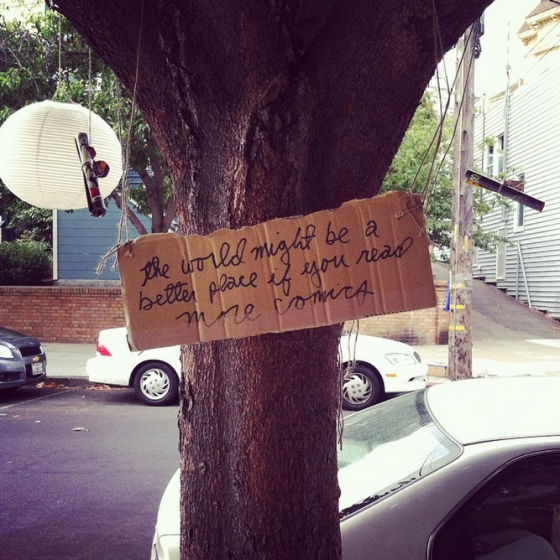 the world might be a
better place if you read
more comics